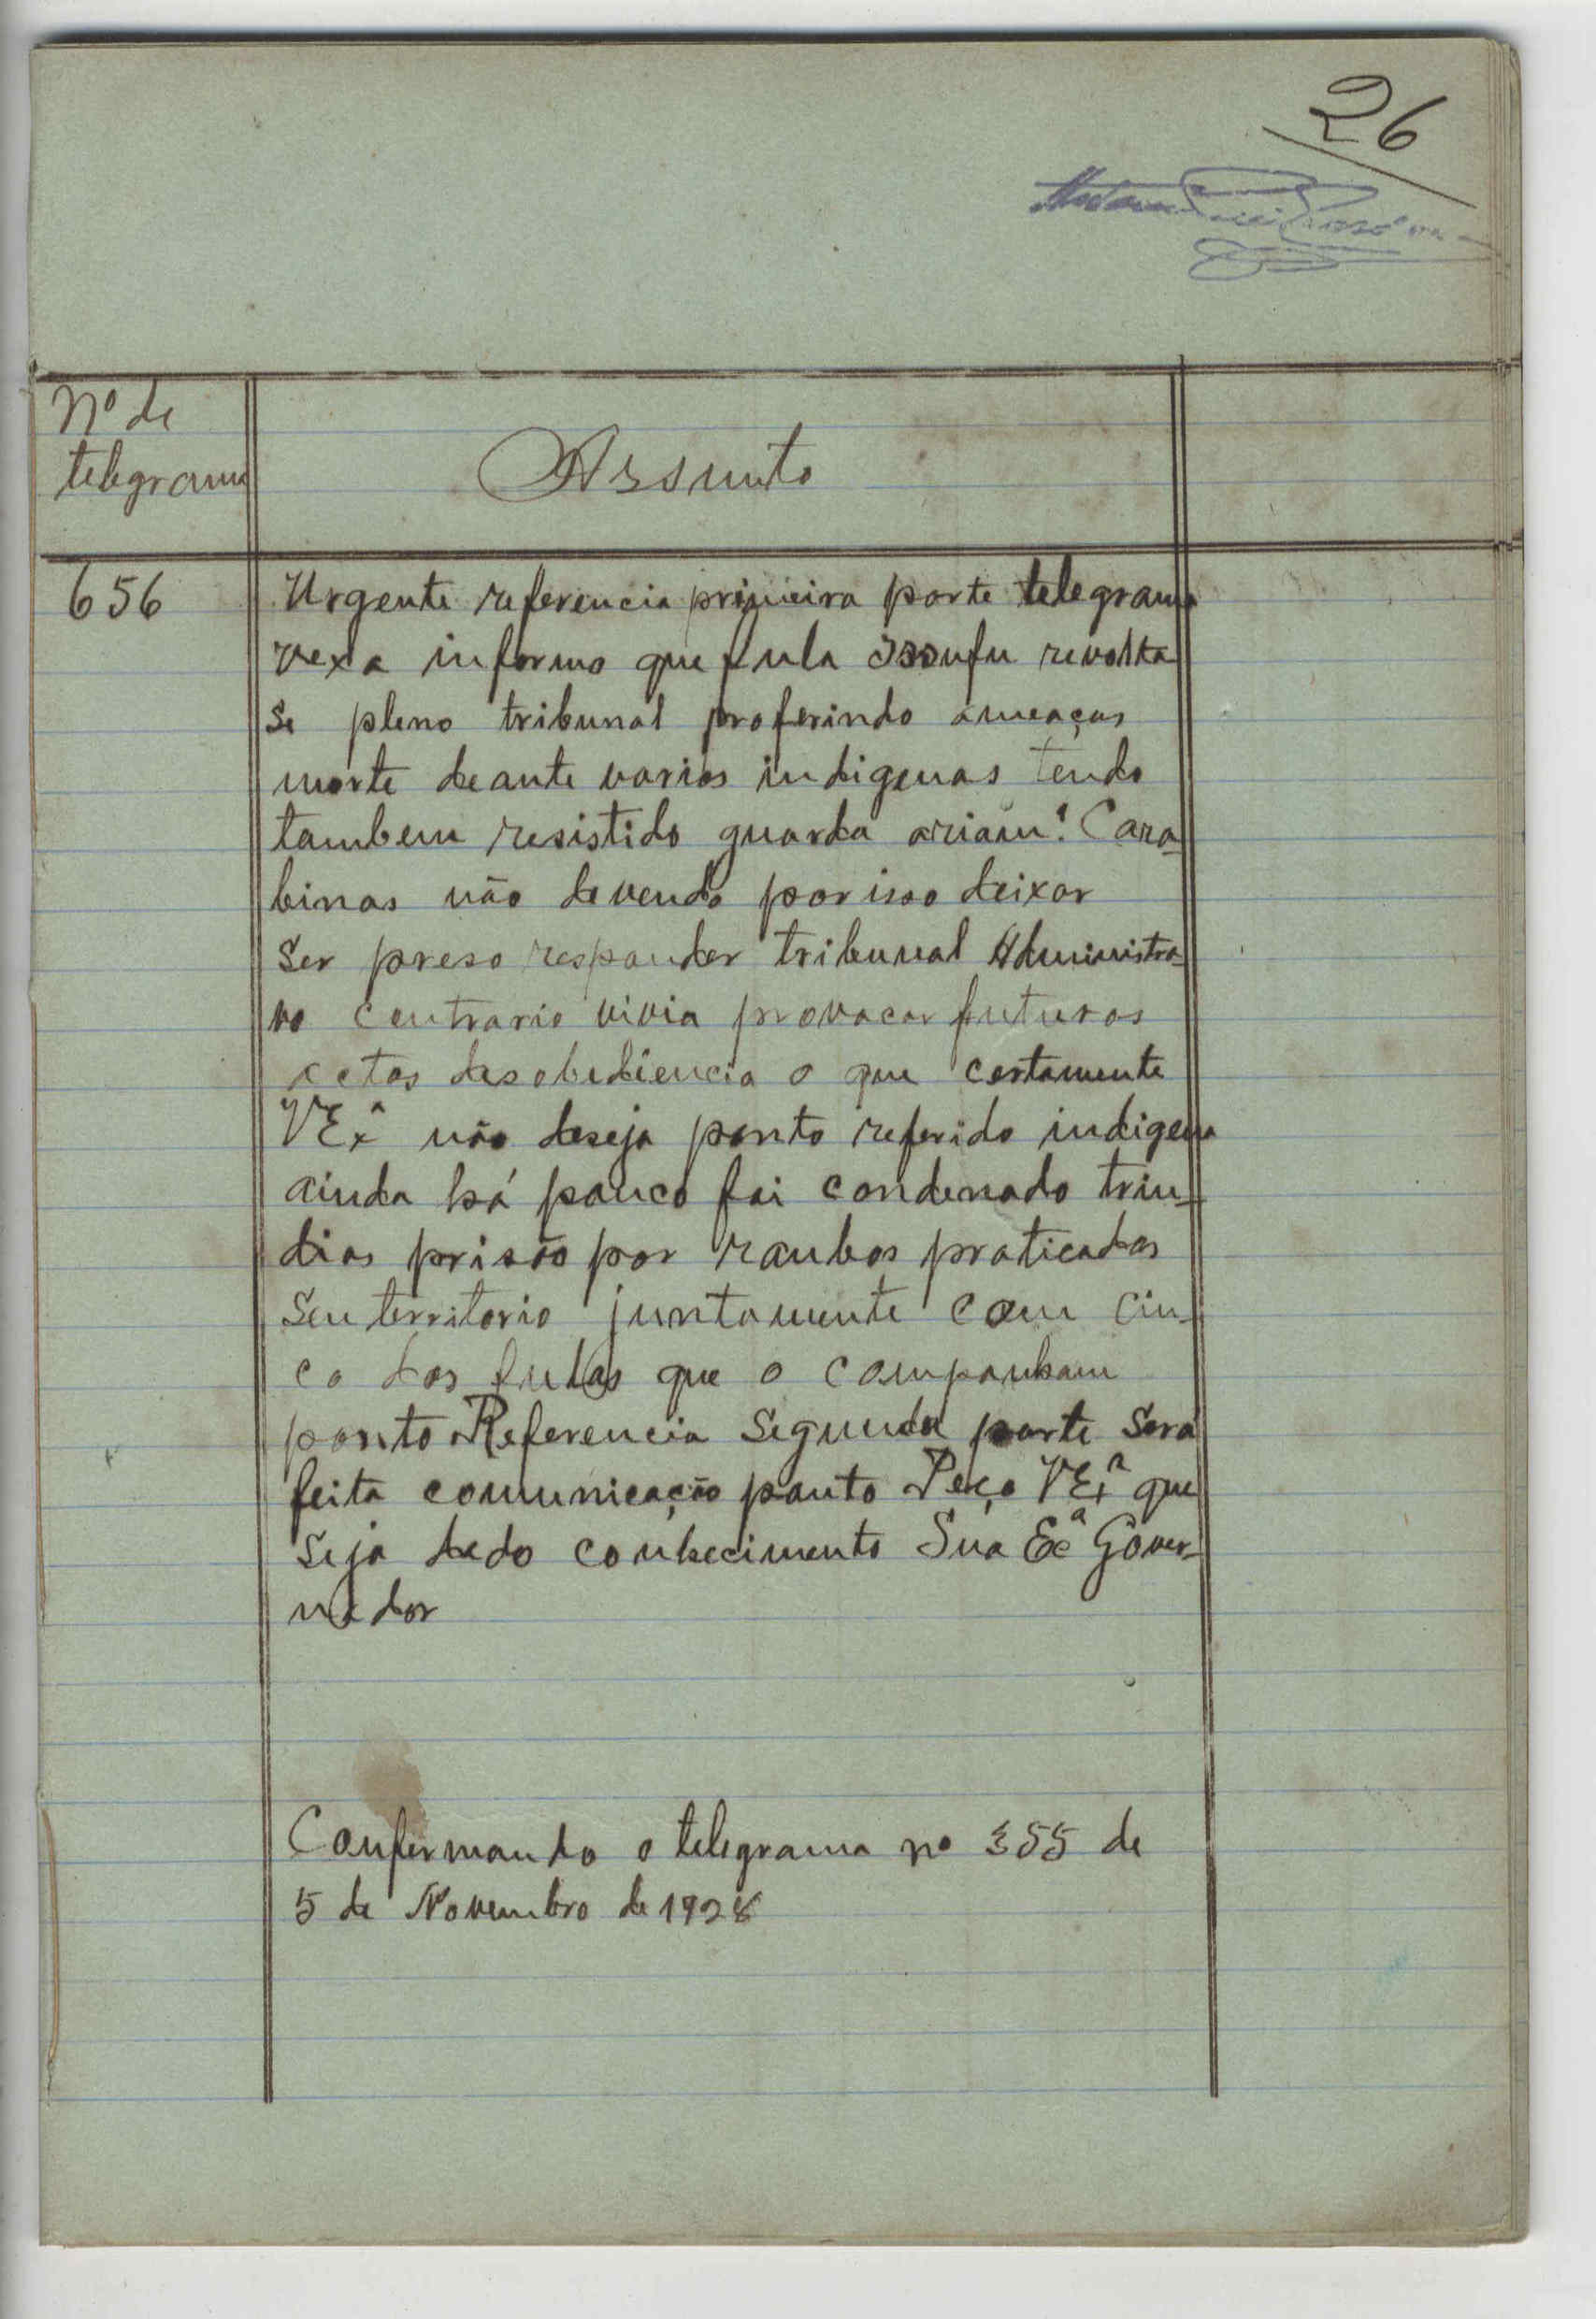 26
Nº de
telegrama
Assunto
656
Urgente referencia primeira parte telegrama
vexa informo que fula Issufu revolta
se pleno tribunal proferindo ameaças
morte deante varios indigenas tendo
tambem resistido guarda Cara-
binas não devendo por isso deixar
ser preso responder tribunal Administra-
vo contrario vivia provocar futuros
actos desobediencia o que certamente
VExª não deseja ponto referido indigena
ainda há pouco foi condenado trin-
dias prisão por roubos praticados
seu territorio juntamente com cin-
co dos fulas que o companham
ponto Referencia segunda parte será
feita comunicação ponto Peço VExª que
seja dado conhecimento Sua Exª Gover-
nador
Confermando o telegrama nº 355 de
5 de Novembro de 1928